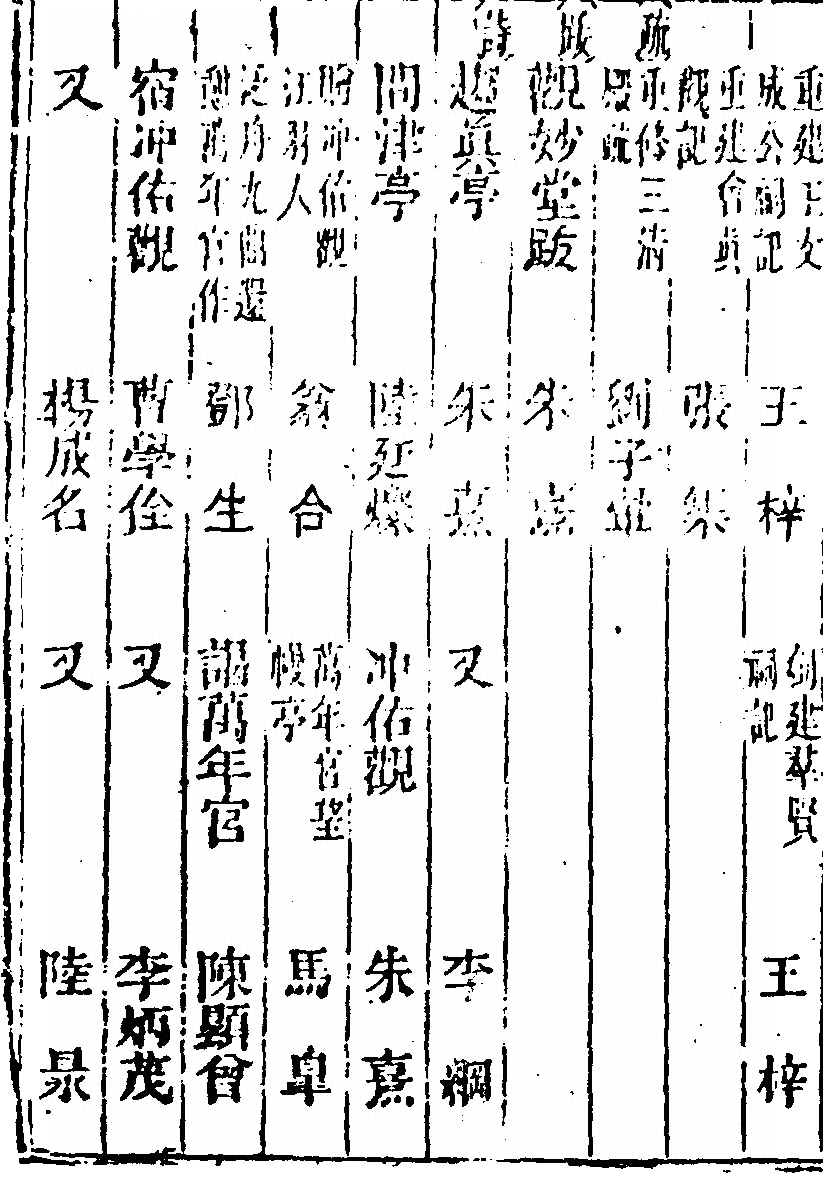 重建王文成公祠記 王梓 創建羣賢祠記 王梓
重建會眞觀記 張
疏
重修三清殿疏 劉子翬
跋
觀妙堂跋 朱熹
詩
趨眞亭 朱熹 又 李綱
問津亭 陸廷燦 冲佑觀 朱熹
贈冲佑觀江羽人 翁合 萬年宮望幔亭 馬臯
泛舟九曲還憩萬年宮作 鄧生 謁萬年宮 陳顯曾
宿冲佑觀 曹學佺 又 李炳茂
又 楊成名 又 陸